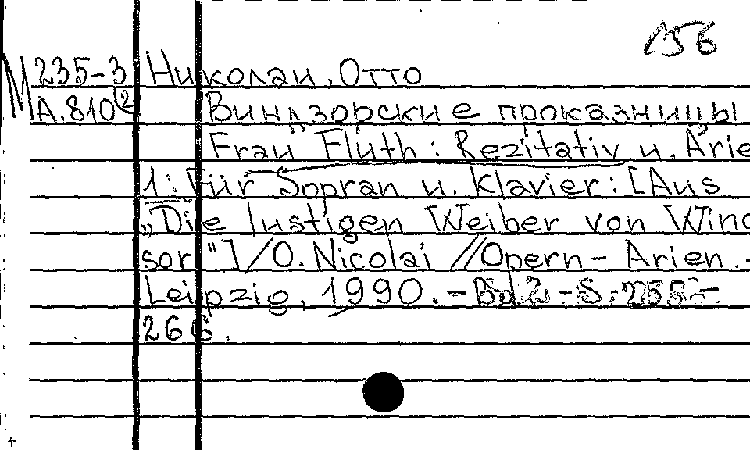 156
М235-3 Николаи, Отто
А.810② Виндзорские проказницы
Frau Fluth: Rezitativ u. Arie
1: Für Sopran u. Klavier: [Aus
„Die lustigen Weiber von Wind
sor"] / O. Nicolai // Opern-Arien.-
Leipzig, 1990. - Bd.2. - S. 255-
266.